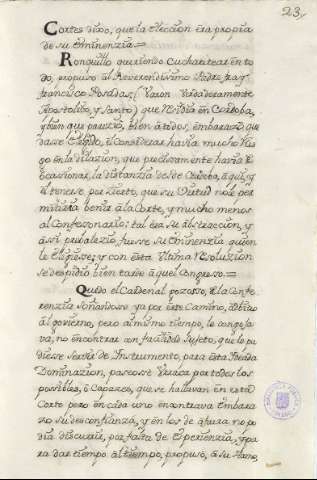 23,,
Cortes dixo, que la eleccion era propia
de su Eminenzia =
Ronquillo queriendo cucharetear en to
do, propuso al Reverendissimo Padre fray
francisco Posadas, (Varon Verdaderamente
Apostolico, y Santo) que residia en Cordoba,
y bien que parezió, bien à todos, embarazó que
dasse elegido, el considerar havia mucho Ries
go en la dilazion, que precisamente havia de
ocasionar, la distanzia desde Cordoba, à qui, y
el tenerse por zierto, que su Virtud no le per
mitiria benir à la Corte, y mucho menos
al Confesonario: tal era su abstraccion, y
assi prebalezió, fuesse su Eminenzia quien
le eligiesse; y con esta Ultima Resoluzion
se despidio bien tarde aquel Congreso. =
Quedó el Cardenal gozosso, de la Confe
renzia soñandose ya por este Camino, arbitro
del govierno, pero al mismo tiempo, le congoja
va, no encontrar con facilidad Sujeto, que le pu
diesse servir de Instrumento, para esta ideada
Dominazion, paseosse Veraca por todos los
possibles, ò Capaces, que se hallavan en esta
Corte pero en cada uno encontrava Embara
zo su desconfianza, y en los de afuera no po
dia discurrir, por falta de experienzia, y pa
ra dar tiempo al tiempo, propuso, à su Amo,